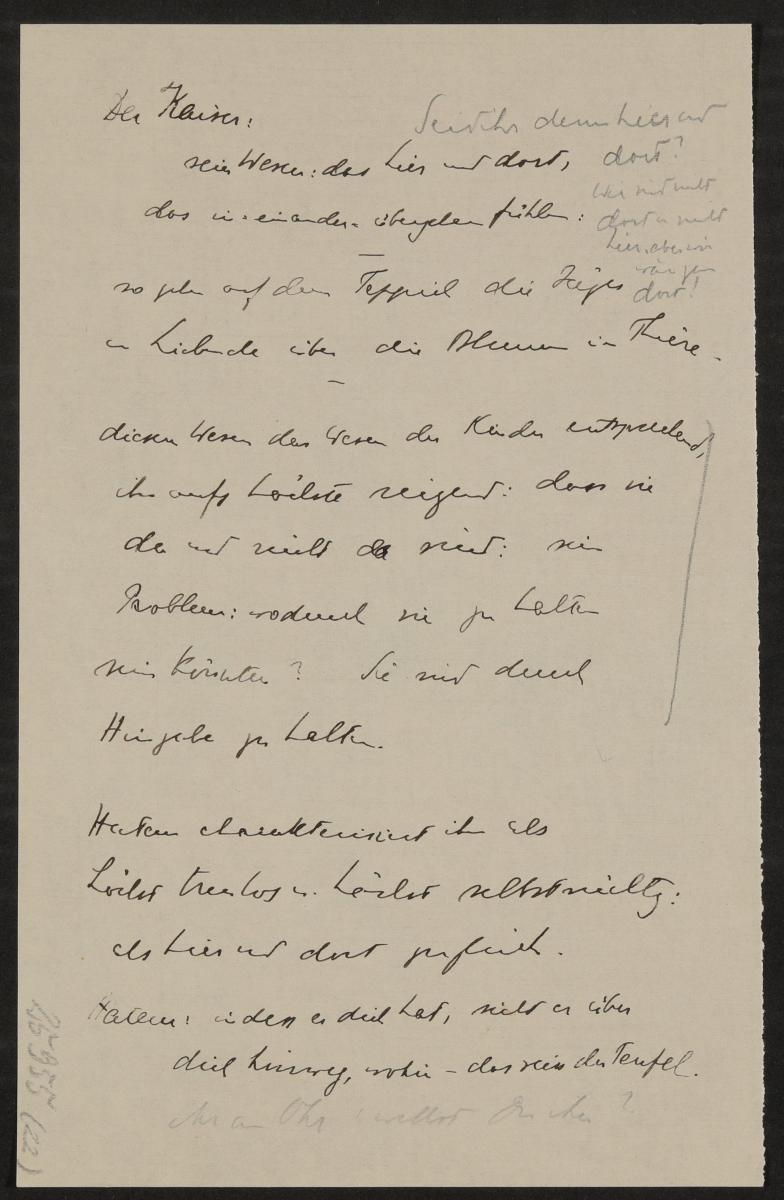 Der Kaiser:
sein Wesen: das hier und dort,
das in-einander-übergehen fühlen:
Seid ihr denn hier und
dort?
Wir sind nicht
dort u nicht
hier, aber wir
dort!
so gehn auf dem Teppich die Jäger
u Liebende über die Blumen in Thiere.
diesem Wesen das Wesen der Kinder entsprechend,
ihn aufs höchste reizend: dass sie
da und nicht da sind: sein
Problem: wodurch sie zu halten
sein könnten? Sie sind durch
Hingabe zu halten.
Hatem charakterisiert ihn als
höchst treulos u. höchst selbstsüchtig:
als hier und dort zugleich.
Hatem: indem er dich hat, sieht er über
dich hinweg, wohin – das weiss der Teufel.
Ohr
(22)